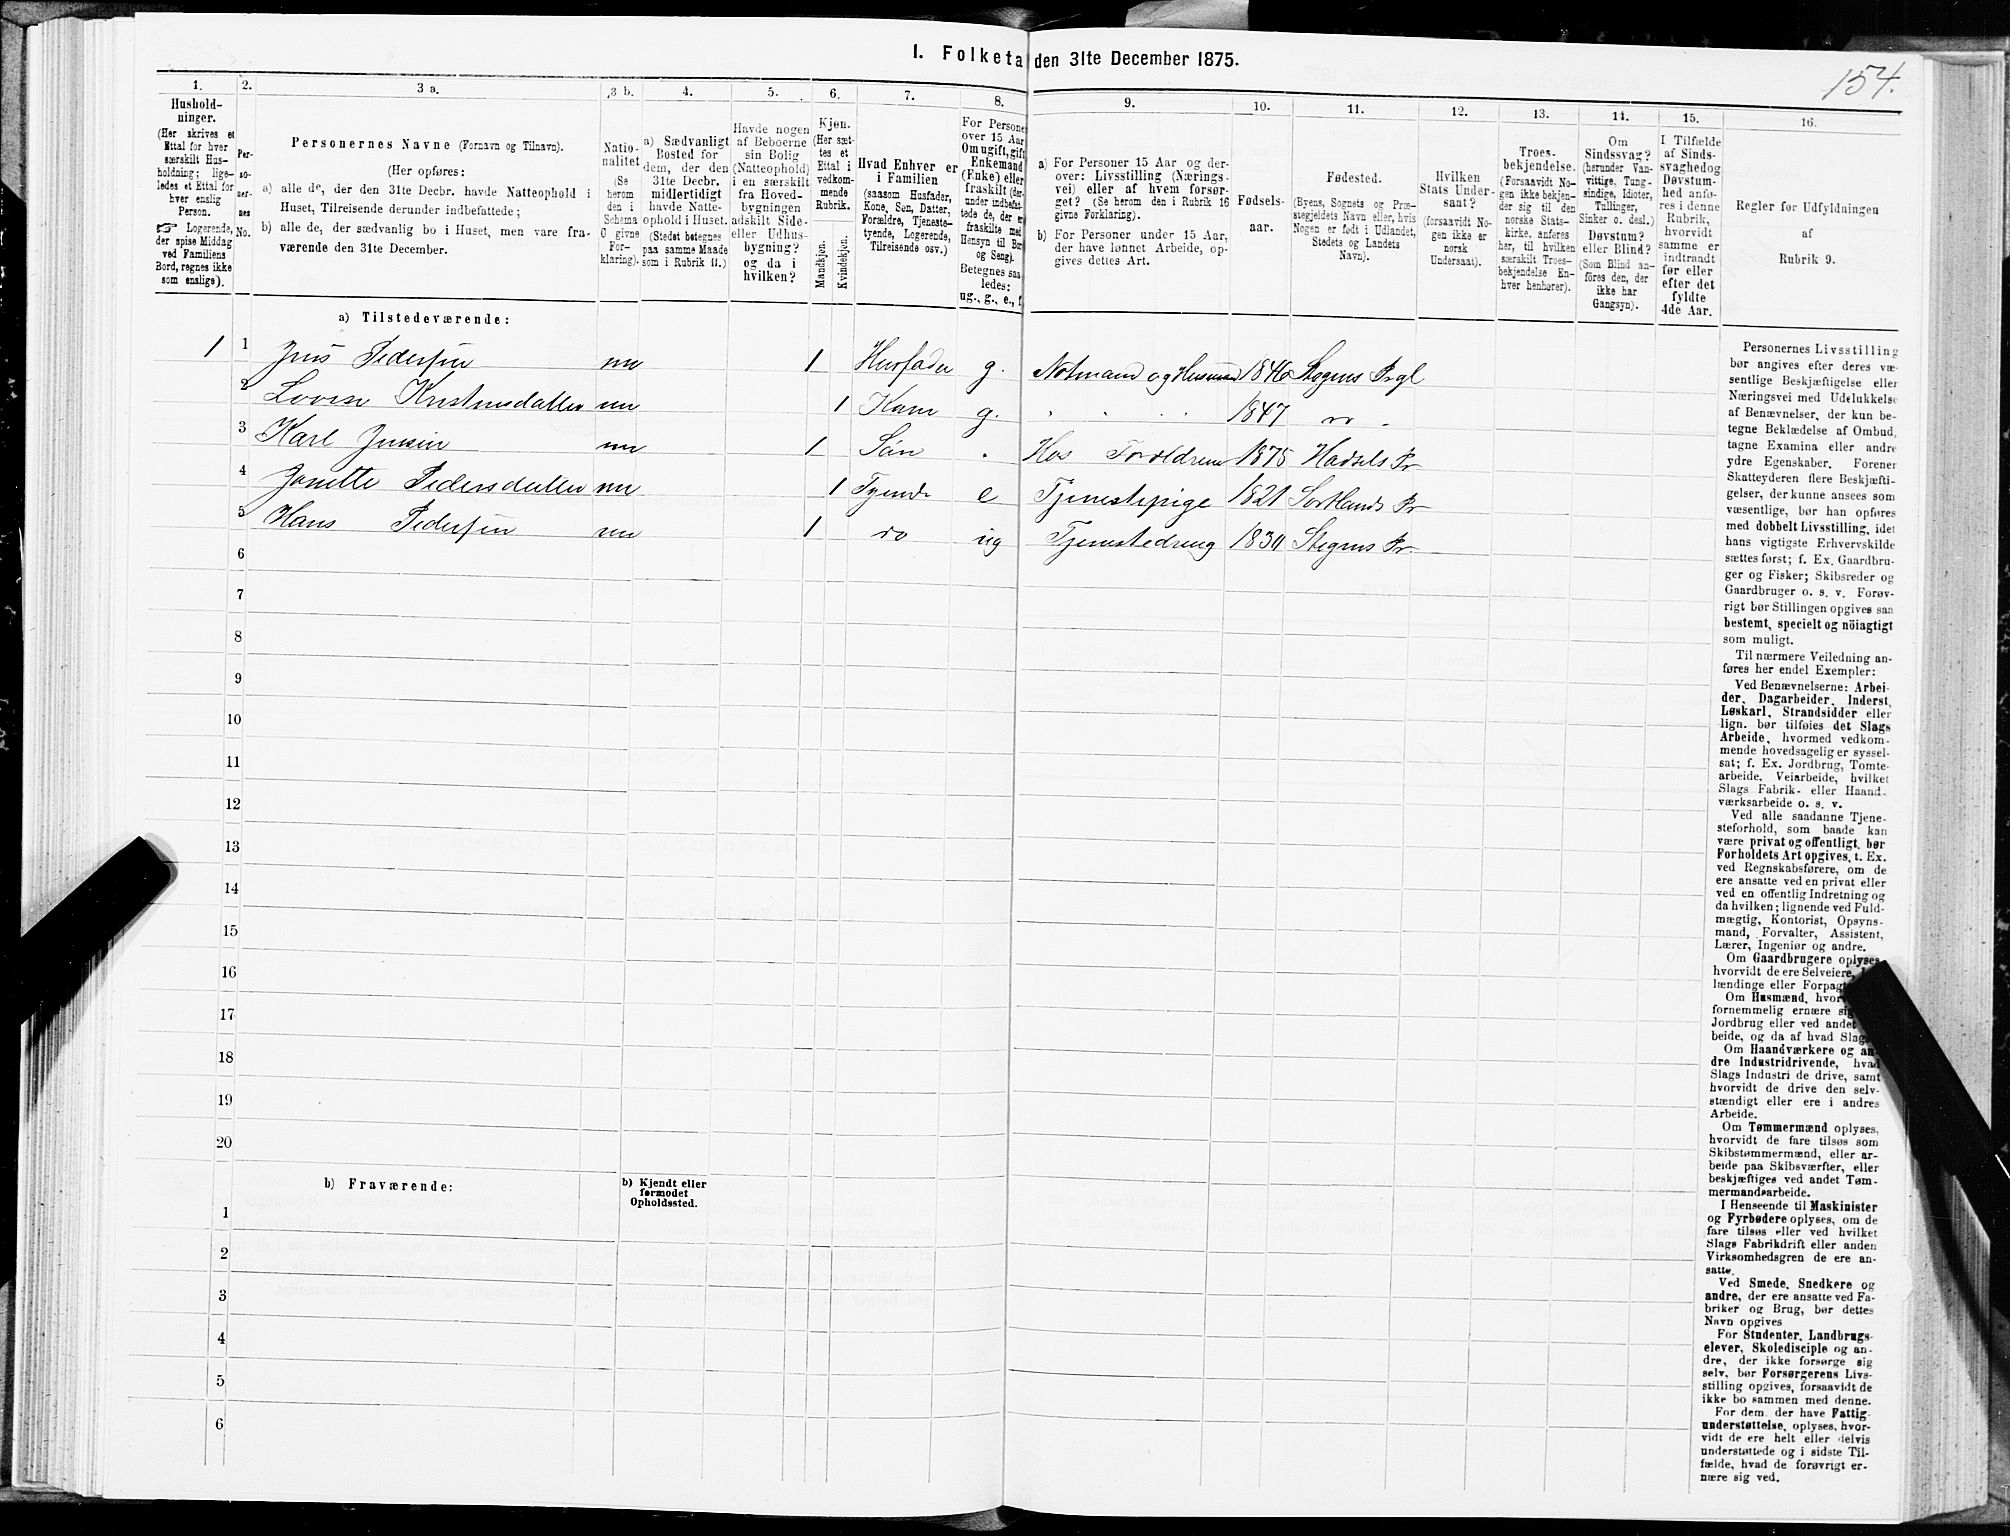 I. Folketa den 31te December 1875.
154.
1. 2. 3 a. 3 b. 4. 5. 6. 7. 8. 9. 10. 11. 12. 13. 14. 15. 16.
Hushold-
ninger.
(Her skrives et
Ettal for hver
særskilt Hus-
holdning; lige-
ledes et Ettal for
hver enslig
Person.
☞ Logerende,
der spise Middag
ved Familiens
Bord, regnes ikke
som enslige).
Per-
so-
ner-
nes
No.
Personernes Navne (Fornavn og Tilnavn).
(Her opføres:
a) alle de, der den 31te Decbr. havde Natteophold i
Huset, Tilreisende derunder indbefattede;
b) alle de, der sædvanlig bo i Huset, men vare fra-
værende den 31te December.
Natio-
nalitet
(Se
herom
den i
Schema
C givne
For-
klaring).
a) Sædvanligt
Bosted for
dem, der den
31te Decbr.
midlertidigt
havde Natte-
ophold i Huset.
(Stedet betegnes
paa samme Maade
som i Rubrik 11.)
Havde nogen
af Beboerne
sin Bolig
(Natteophold)
i en særskilt
fra Hoved-
bygningen
adskilt Side-
eller Udhus-
bygning?
og da i
hvilken?
Kjøn.
(Her sæt-
tes et
Ettal i
vedkom-
mende
Rubrik.
Mandkjøn.
Kvindekjøn.
Hvad Enhver er
i Familien
(saasom Husfader,
Kone, Søn, Datter,
Forældre, Tjeneste-
tyende, Logerende,
Tilreisende osv.)
For Persone
over 15 Aar
Om ugift, gift
Enkemand
(Enke) eller
fraskilt (der
under indbefat-
tede de, der er
fraskilte med
Hensyn til Bor
og Seng).
Betegnes saa
ledes:
ug., g., e., f.
a) For Personer 15 Aar og der-
over: Livsstilling (Nærings-
vei) eller af hvem forsør-
get? (Se herom den i Rubrik 16
givne Forklaring).
b) For Personer under 15 Aar,
der have lønnet Arbeide, op-
gives dettes Art.
Fødsels-
aar.
Fødested.
(Byens, Sognets og Præ-
stegjeldets Navn eller, hvis
Nogen er født i Udlandet,
Stedets og Landets
Navn).
Hvilken
Stats Under-
saat?
(forsaavidt No-
gen ikke er
norsk
Undersaat).
Troes-
bekjendelse.
(Forsaavidt No-
gen ikke bekjen-
der sig til den
norske Stats-
kirke, anføres
her, til hvilken
særskilt Troes-
bekjendelse En-
hver henhører).
Om
Sindssvag?
(herunder Van-
vittige, Tung-
sindige, Idioter,
Tullinger,
Sinker o. desl.)
Døvstum?
eller Blind?
(Som Blind an-
föres den, der
ikke har
Gangsyn).
I Tilfælde
af Sinds-
svaghed og
Døvstum-
hed anfø-
res i denne
Rubrik,
hvorvidt
samme er
indtraadt
før eller
efter det
fyldte
4de Aar.
Regler for Udfyldningen
af
Rubrik 9.
a) Tilstedeværende:
1 1 Jens Pedersen nn 1 Husfader g. Notmand og Husmand 1846 Stegens Prgl
2 Lovise Kristensdatter nn 1 Kone g. 1847 do
3 Karl Jensen nn 1 Søn Hos Foreldrene 1875 Hadsels Pr
4 Jonette Pedersdatter nn 1 Tyende e Tjenestepige 1821 Sortlands Pr
5 Hans Pedersen nn 1 do ug Tjenestedreng Stegens Pr.
6
7
8
9
10
11
12
13
14
15
16
17
18
19
20
b) Fraværende:
b) Kjendt eller
formodet
Opholdssted.
1
2
3
4
5
6
Personernes Livsstilling
bør angives efter deres væ-
sentlige Beskjæftigelse eller
Næringsvei med Udelukkelse
af Benævnelser, der kun be-
tegne Beklædelse af Ombud,
tagne Examina eller andre
ydre Egenskaber. Forener
Skatteyderen flere Beskjæfti-
gelser, der kunne ansees som
væsentlige, bør han opføres
med dobbelt Livsstilling, idet
hans vigtigste Erhvervskilde
sættes først; f. Ex. Gaardbru-
ger og Fisker; Skibsreder og
Gaardbruger o. s. v. Forøv-
rigt bør Stillingen opgives saa
bestemt, specielt og nöiagtigt
som muligt.
Til nærmere Veiledning an-
føres her endel Exempler:
Ved Benævnelserne: Arbei-
der, Dagarbeider, Inderst,
Løskarl, Strandsidder eller
lign. bør tilføies det Slags
Arbeide, hvormed vedkom-
mende hovedsagelig er syssel-
sat; f. Ex. Jordbrug, Tomte-
arbeide, Veiarbeide, hvilket
Slags Fabrik- eller Haand-
værksarbeide o. s. v.
Ved alle saadanne Tjene-
steforhold, som baade kan
være privat og offentligt, bør
Forholdets Art opgives, t. Ex.
ved Regnskabsførere, om de
ere ansatte ved en privat eller
ved en offentlig Indretning og
da hvilken; lignende ved Fuld-
mægtig, Kontorist, Opsyns-
mand, Forvalter, Assistent,
Lærer, Ingeniør og andre.
Om Gaardbrugere oplyses,
hvorvidt de ere Selveiere,
lændinge eller Forpag
Om Husmænd, hvor
fornemmelig ernære sig
Jordbrug eller ved andet
beide, og da af hvad Slags
Om Haandværkere og an-
dre Industridrivende, hvad
Slags Industri de drive, samt
hvorvidt de drive den selv-
stændigt eller ere i andres
Arbeide.
Om Tømmermænd oplyses,
hvorvidt de fare tilsøs som
Skibstømmermænd, eller ar-
beide paa Skibsværfter, eller
beskjæftiges ved andet Tøm-
mermandsarbeide.
I Henseende til Maskinister
og Fyrbødere oplyses, om de
fare tilsøs eller ved hvilket
Slags Fabrikdrift eller anden
Virksomhedsgren de ere an-
satte.
Ved Smede, Snedkere og
andre, der ere ansatte ved Fa-
briker og Brug, bør dettes
Navn opgives
For Studenter, Landbrugs-
elever, Skoledisciple og an-
dre, der ikke forsørge sig
selv, bør Forsørgerens Livs-
stilling opgives, forsaavidt de
ikke bo sammen med denne.
For dem, der have Fattig-
understøttelse, oplyses, hvor-
vidt de ere helt eller delvis
understøttede og i sidste Til-
fælde, hvad de forøvrigt er-
nære sig ved.